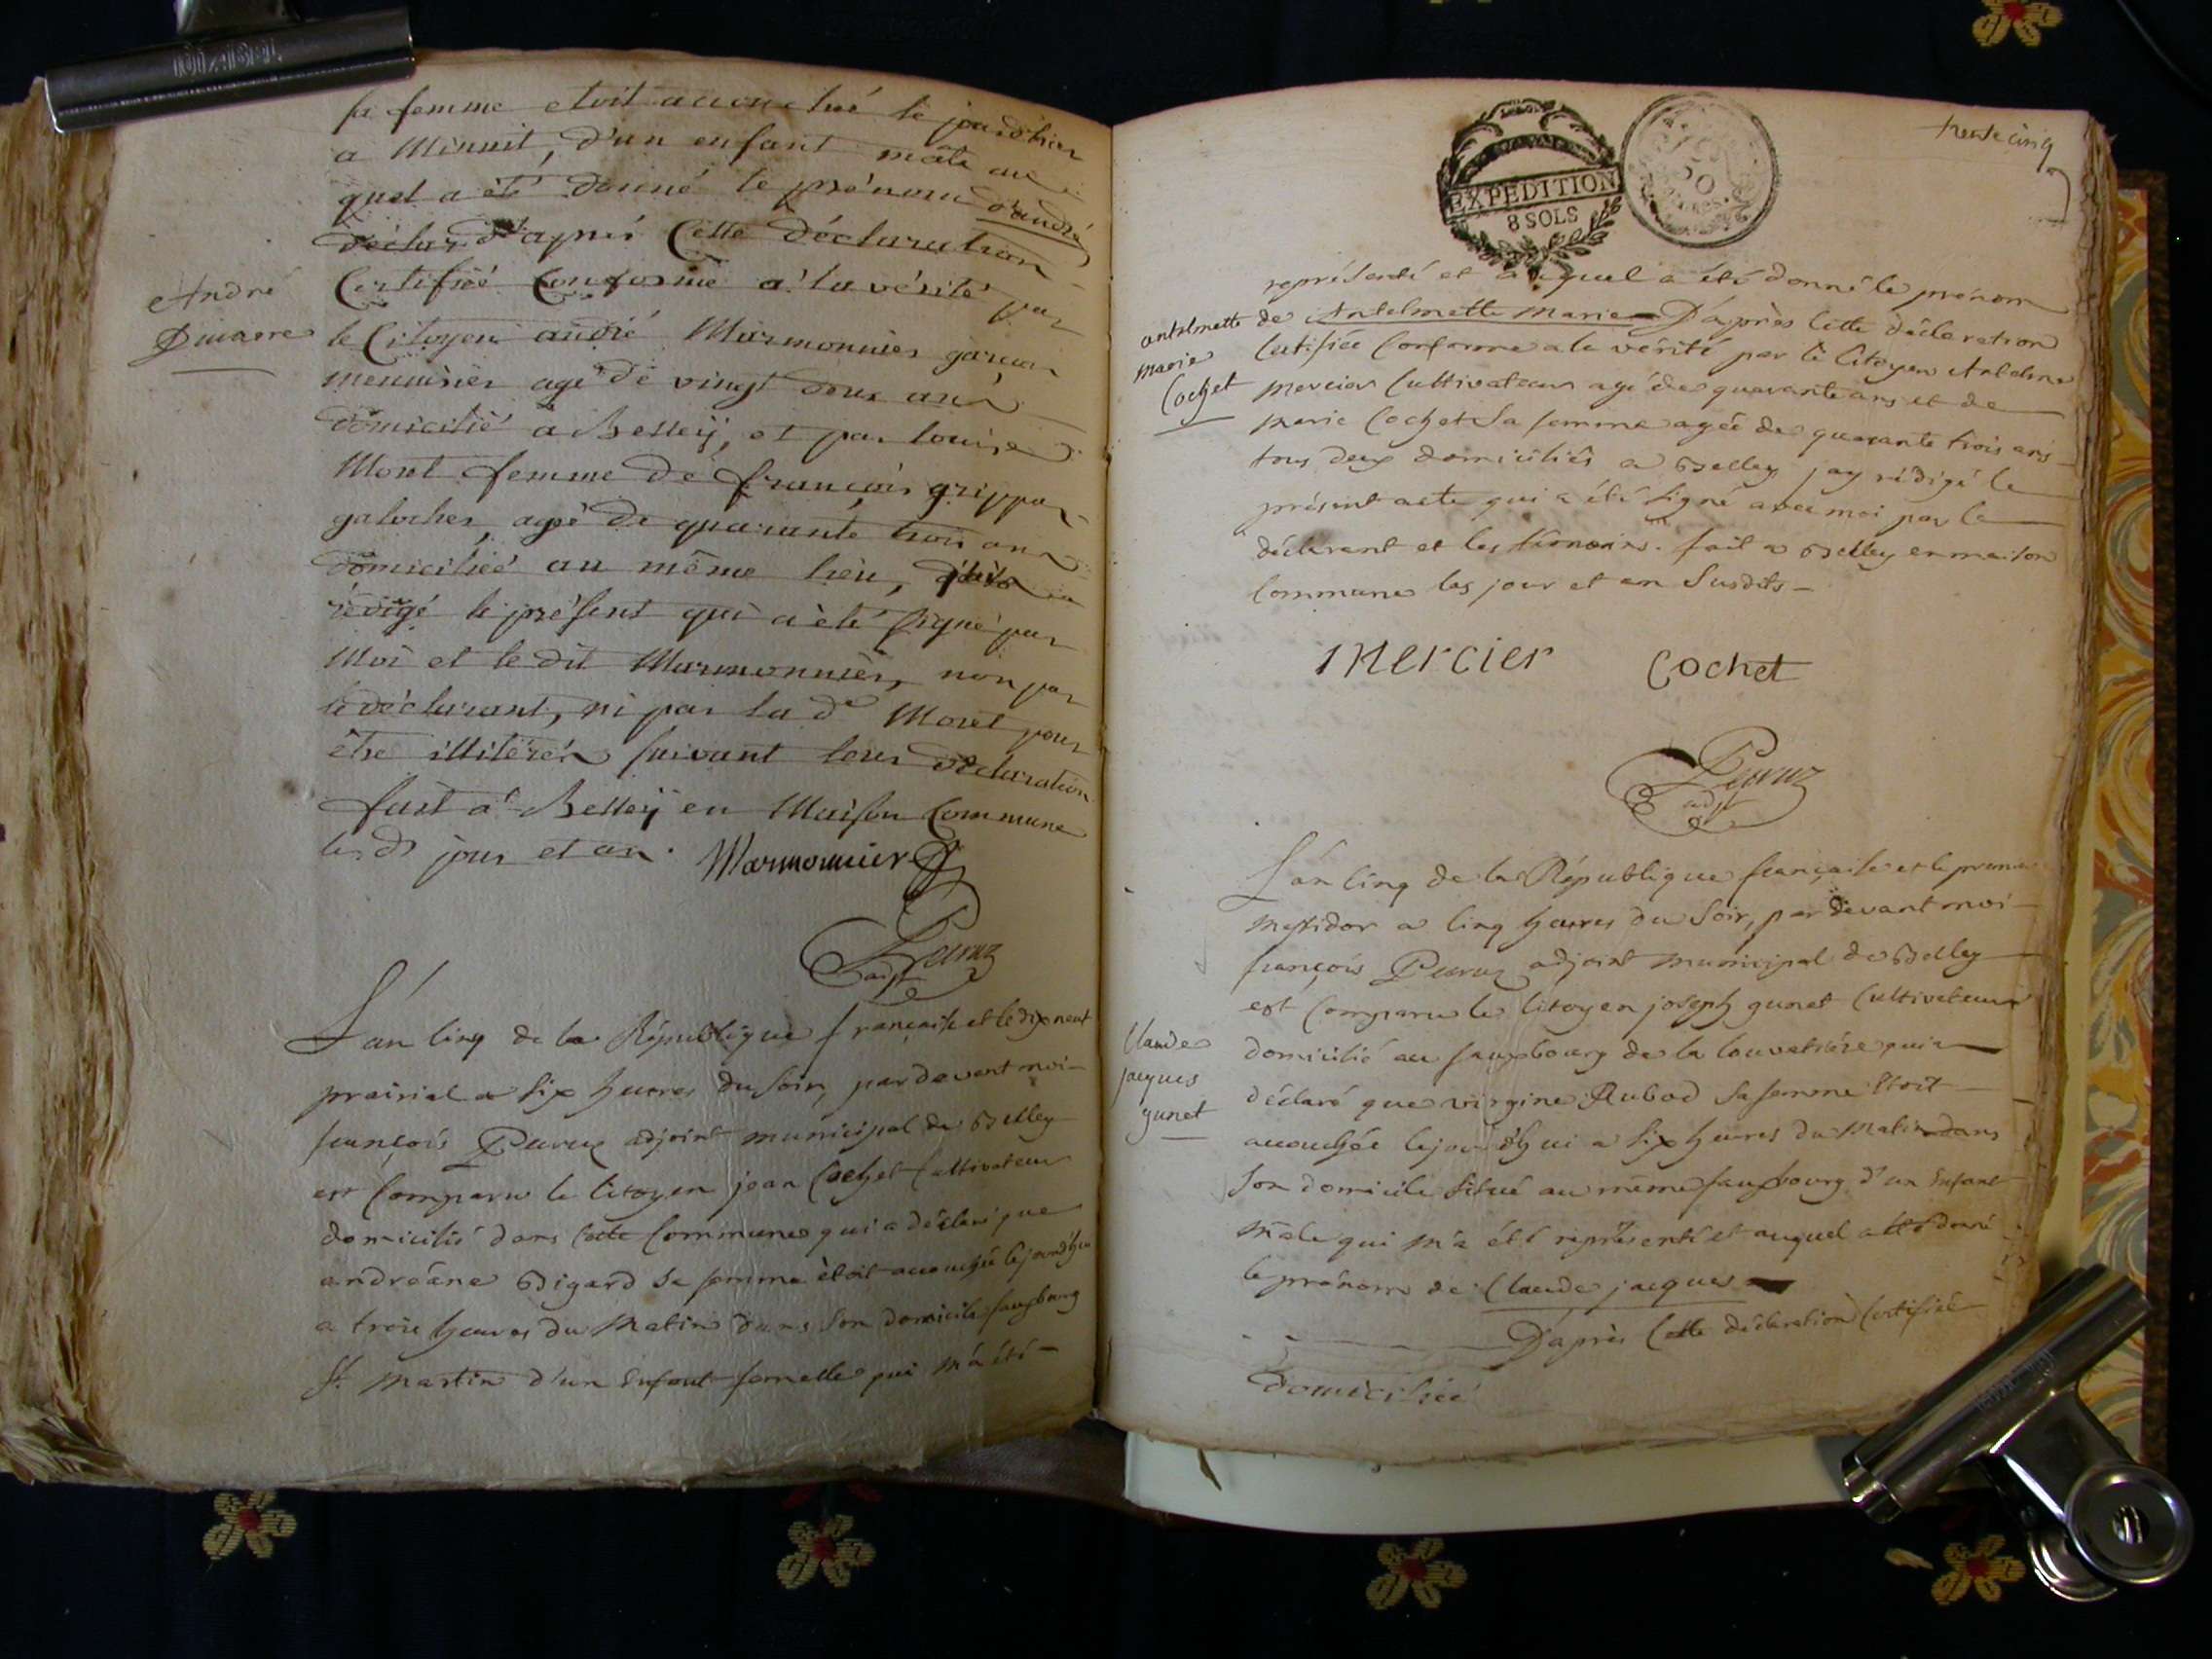 sa femme etoit accouchée le jour d'hier
a Minuit, d'un enfant mâle au
quel a été donné le prénom d'andré
d'après Cette déclaration
Certifiée Conforme a la vérité par
André
le Citoyen andré Marmonnier garçon
menuisier agé de vingt deux ans
domicilié à Belleÿ, et par louise
Moret femme de françois grippa
galocher, agée de quarante trois ans
domiciliée au même lieu,
rédigé le présent qui a été signé par
Moi et le dit Marmonnier, non par
le déclarant, ni par la de Moret pour
être illitérés suivant leur déclaration
fait a Belleÿ en Maison Commune
les ds jour et an. Marmonnier
adjt
L'an cinq de la République française et le dix neuf
prairial a six heures du soir, pardevant moi
françois adjoint municipal de Belley
est Comparu le Citoyen jean Cochet Cultivateur
domicilié dans cette Commune qui a déclaré que
andréane Bigard sa femme étoit accouchée le jourd'hui
a trois heures du Matin dans son domicile fauxbourg
St. Martin d'un Enfant femelle qui m'a été
trente cinq
EXPEDITION
8 SOLS
50
représenté et auquel a été donné le prénom
antelmette
marie
Cochet
de Antelmette Marie D'après Cette déclaration
Certifiée Conforme a la vérité par le Citoyen Antelme
Mercier Cultivateur agé de quarante ans et de
Marie Cochet Sa femme agée de quarante trois ans
tous deux domiciliés a Belley jay rédigé le
présent acte qui a été signé avec moi par le
déclarant et les témoins. fait a Belley en maison
Commune les jour et an Susdits
Mercier Cochet
adjt
L'an Cinq de la République française et le premier
Messidor a Cinq heures du Soir, par devant moi
françois adjoint municipal de Belley
est Comparu le Citoyen joseph gunet Cultivateur
Claude
jacques
gunet
domicilié au fauxbourg de la louvatière qui a
déclaré que virgine Rubod Sa femme Etoit
accouchée le jour d'hui a Six heures du Matin dans
Son domicile Situé au même fauxbourg d'un Enfant
Mâle qui M'a été représenté et auquel a été donné
le prénom de Claude jacques
D'après Cette déclaration Certifiée
Domiciliée